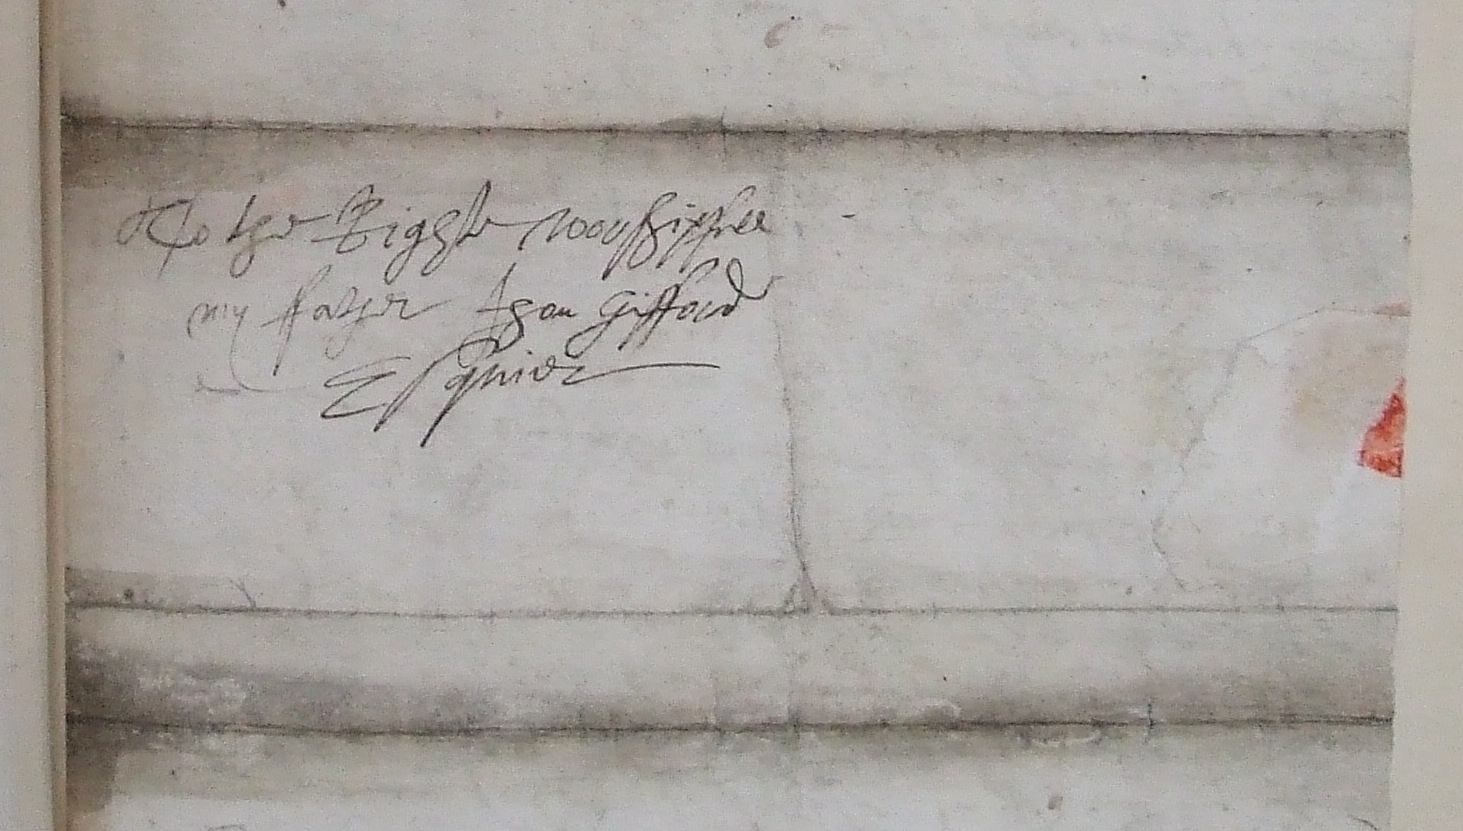 To the Right worshipfull
my father Jhon Gifford
Esquier